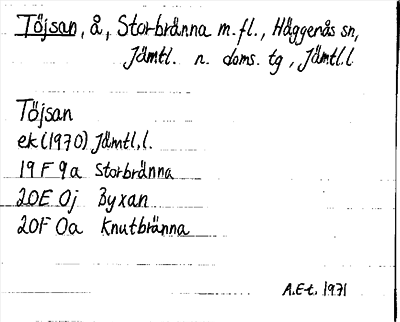 Töjsan, å, Storbränna m.fl., Häggenås sn,
Jämtl. n. doms. tg, Jämtl.l
Töjsan
ek (1970) Jämtl,l.
19 F 9a Storbränna
20E 0j Byxan
20F 0a Knutbränna
A.E-t. 1971